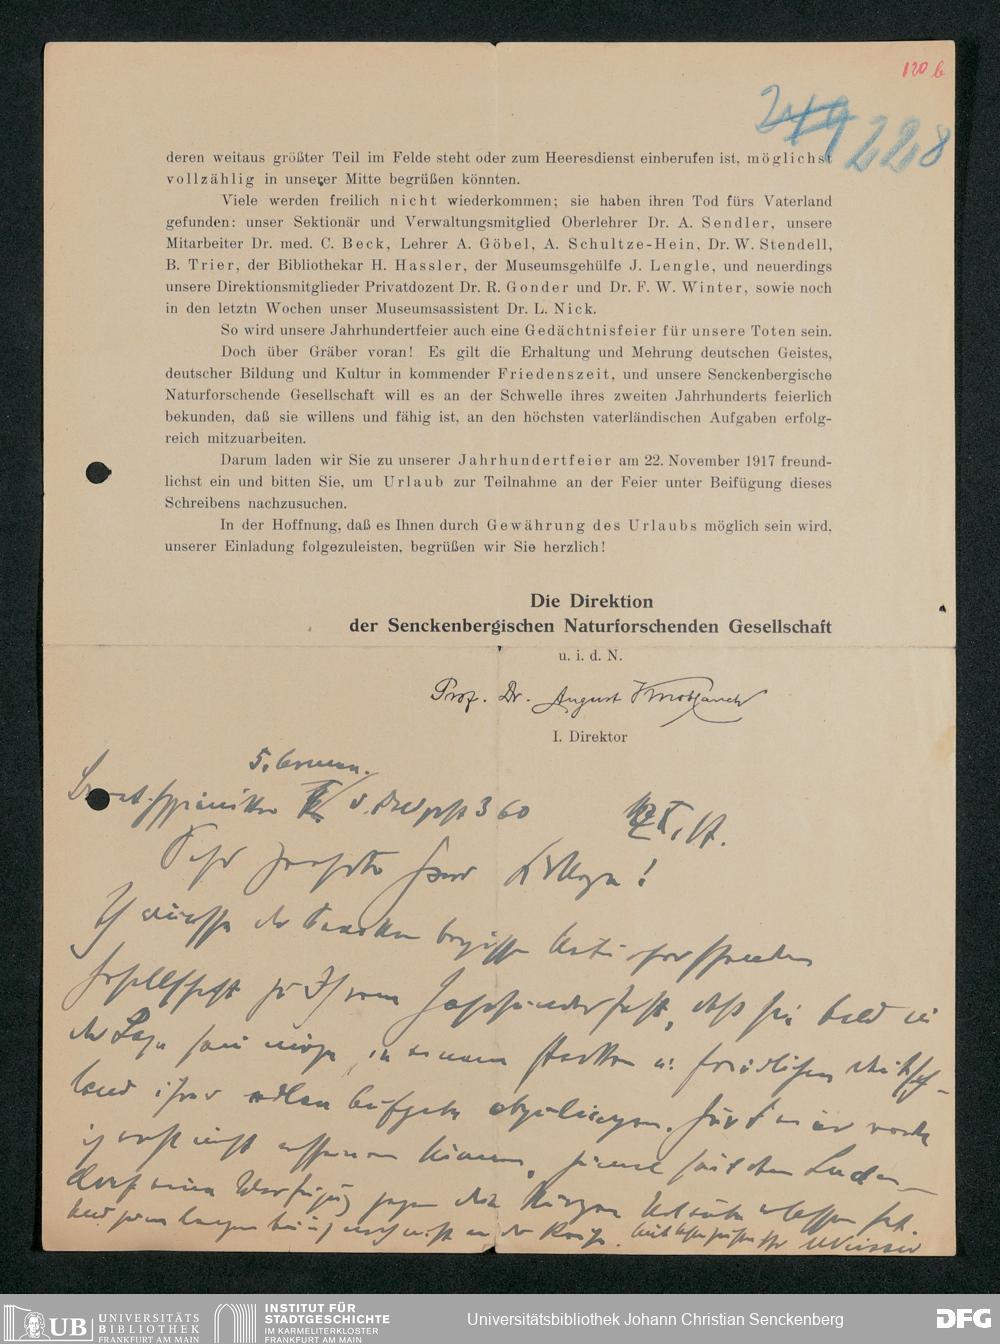 120 b
249 228
deren weitaus größter Teil im Felde steht oder zum Heeresdienst einberufen ist, möglichst
vollzählig in unserer Mitte begrüßen könnten.
Viele werden freilich nicht wiederkommen; sie haben ihren Tod fürs Vaterland
gefunden: unser Sektionär und Verwaltungsmitglied Oberlehrer Dr. A. Sendler, unsere
Mitarbeiter Dr. med. C. Beck, Lehrer A. Göbel, A. Schultze-Hein, Dr. W. Stendell,
B. Trier, der Bibliothekar H. Hassler, der Museumsgehülfe J. Lengle, und neuerdings
unsere Direktionsmitglieder Privatdozent Dr. R. Gonder und Dr. F. W. Winter, sowie noch
in den letztn Wochen unser Museumsassistent Dr. L. Nick.
So wird unsere Jahrhundertfeier auch eine Gedächtnisfeier für unsere Toten sein.
Doch über Gräber voran! Es gilt die Erhaltung und Mehrung deutschen Geistes,
deutscher Bildung und Kultur in kommender Friedenszeit, und unsere Senckenbergische
Naturforschende Gesellschaft will es an der Schwelle ihres zweiten Jahrhunderts feierlich
bekunden, daß sie willens und fähig ist, an den höchsten vaterländischen Aufgaben erfolg-
reich mitzuarbeiten.
Darum laden wir Sie zu unserer Jahrhundertfeier am 22. November 1917 freund-
lichst ein und bitten Sie, um Urlaub zur Teilnahme an der Feier unter Beifügung dieses
Schreibens nachzusuchen.
In der Hoffnung, daß es Ihnen durch Gewährung des Urlaubs möglich sein wird,
unserer Einladung folgezuleisten, begrüßen wir Sie herzlich!
Die Direktion
der Senckenbergischen Naturforschenden Gesellschaft
u. i. d. N.
Prof. Dr. August Knoblauch
I. Direktor
5. Armee.
360
Sehr geehrter Herr Kollege!
Ich wünsche der Senckenbergischen Naturforschenden
Gesellschaft zu Ihrem Jahrhundertfest, daß sie bald in
der Lage sein möge, in einem starken u. friedlichen Deutsch-
land ihrer edlen Aufgabe obzuliegen.
ich nicht können,
gegen den kurzen Urlaub erlassen hat.
UB UNIVERSITÄTS
BIBLIOTHEK
FRANKFURT AM MAIN
INSTITUT FÜR
STADTGESCHICHTE
IM KARMELITERKLOSTER
FRANKFURT AM MAIN
Universitätsbibliothek Johann Christian Senckenberg
DFG